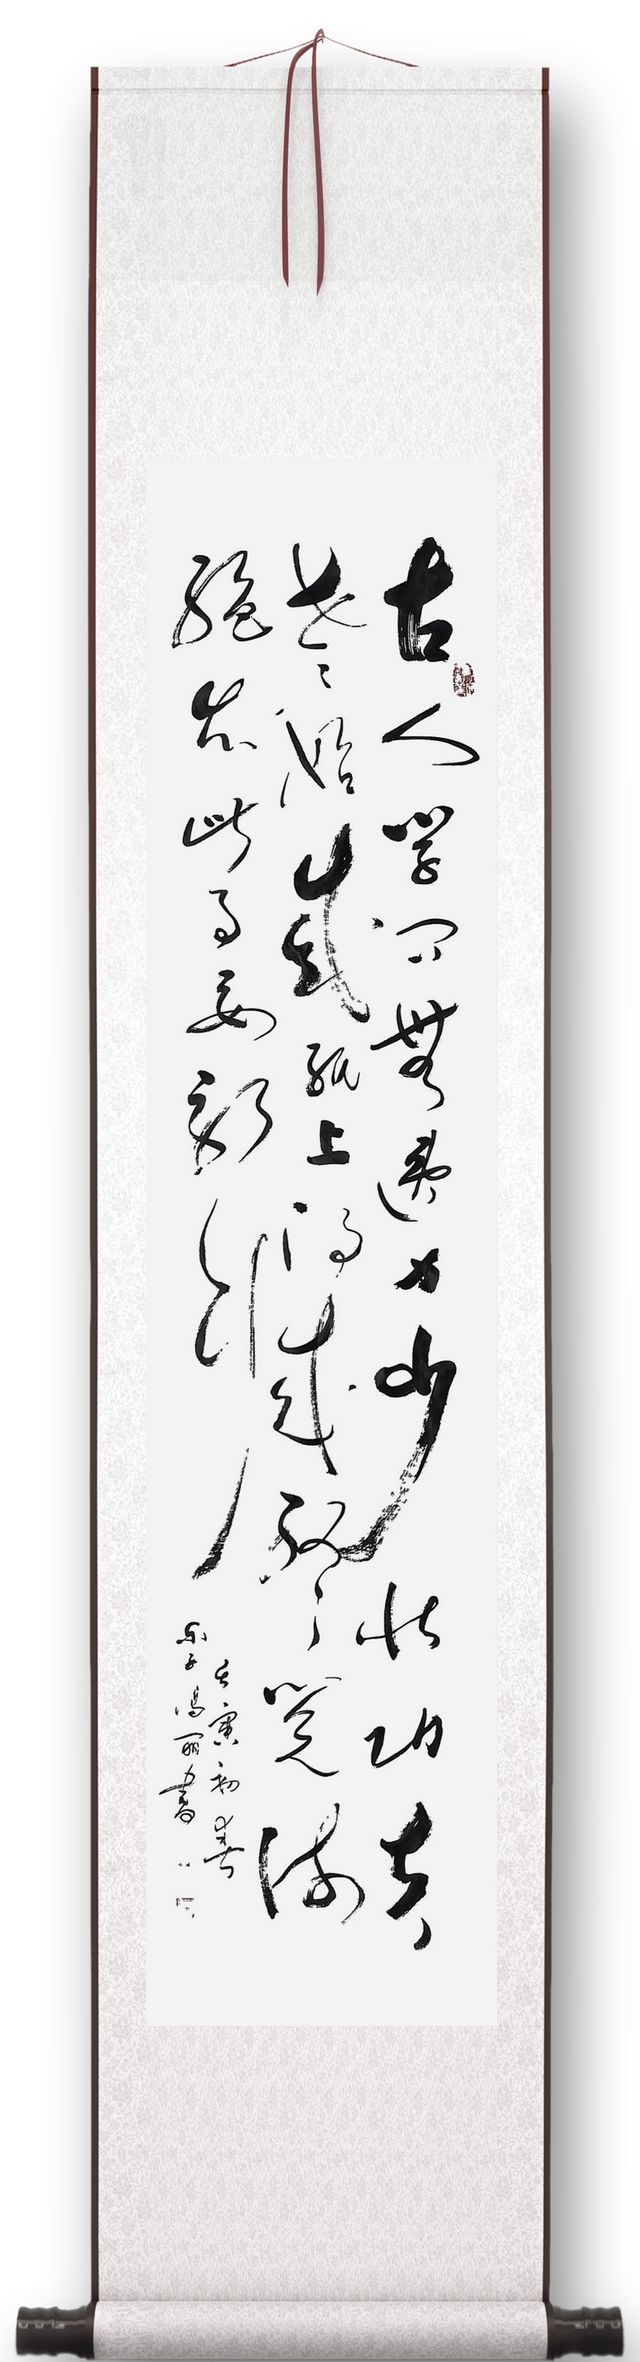 古人学问无遗力少壮功夫
老之始成纸上得来终了觉浅
绝知此事要躬行
壬寅初春
冯丽书